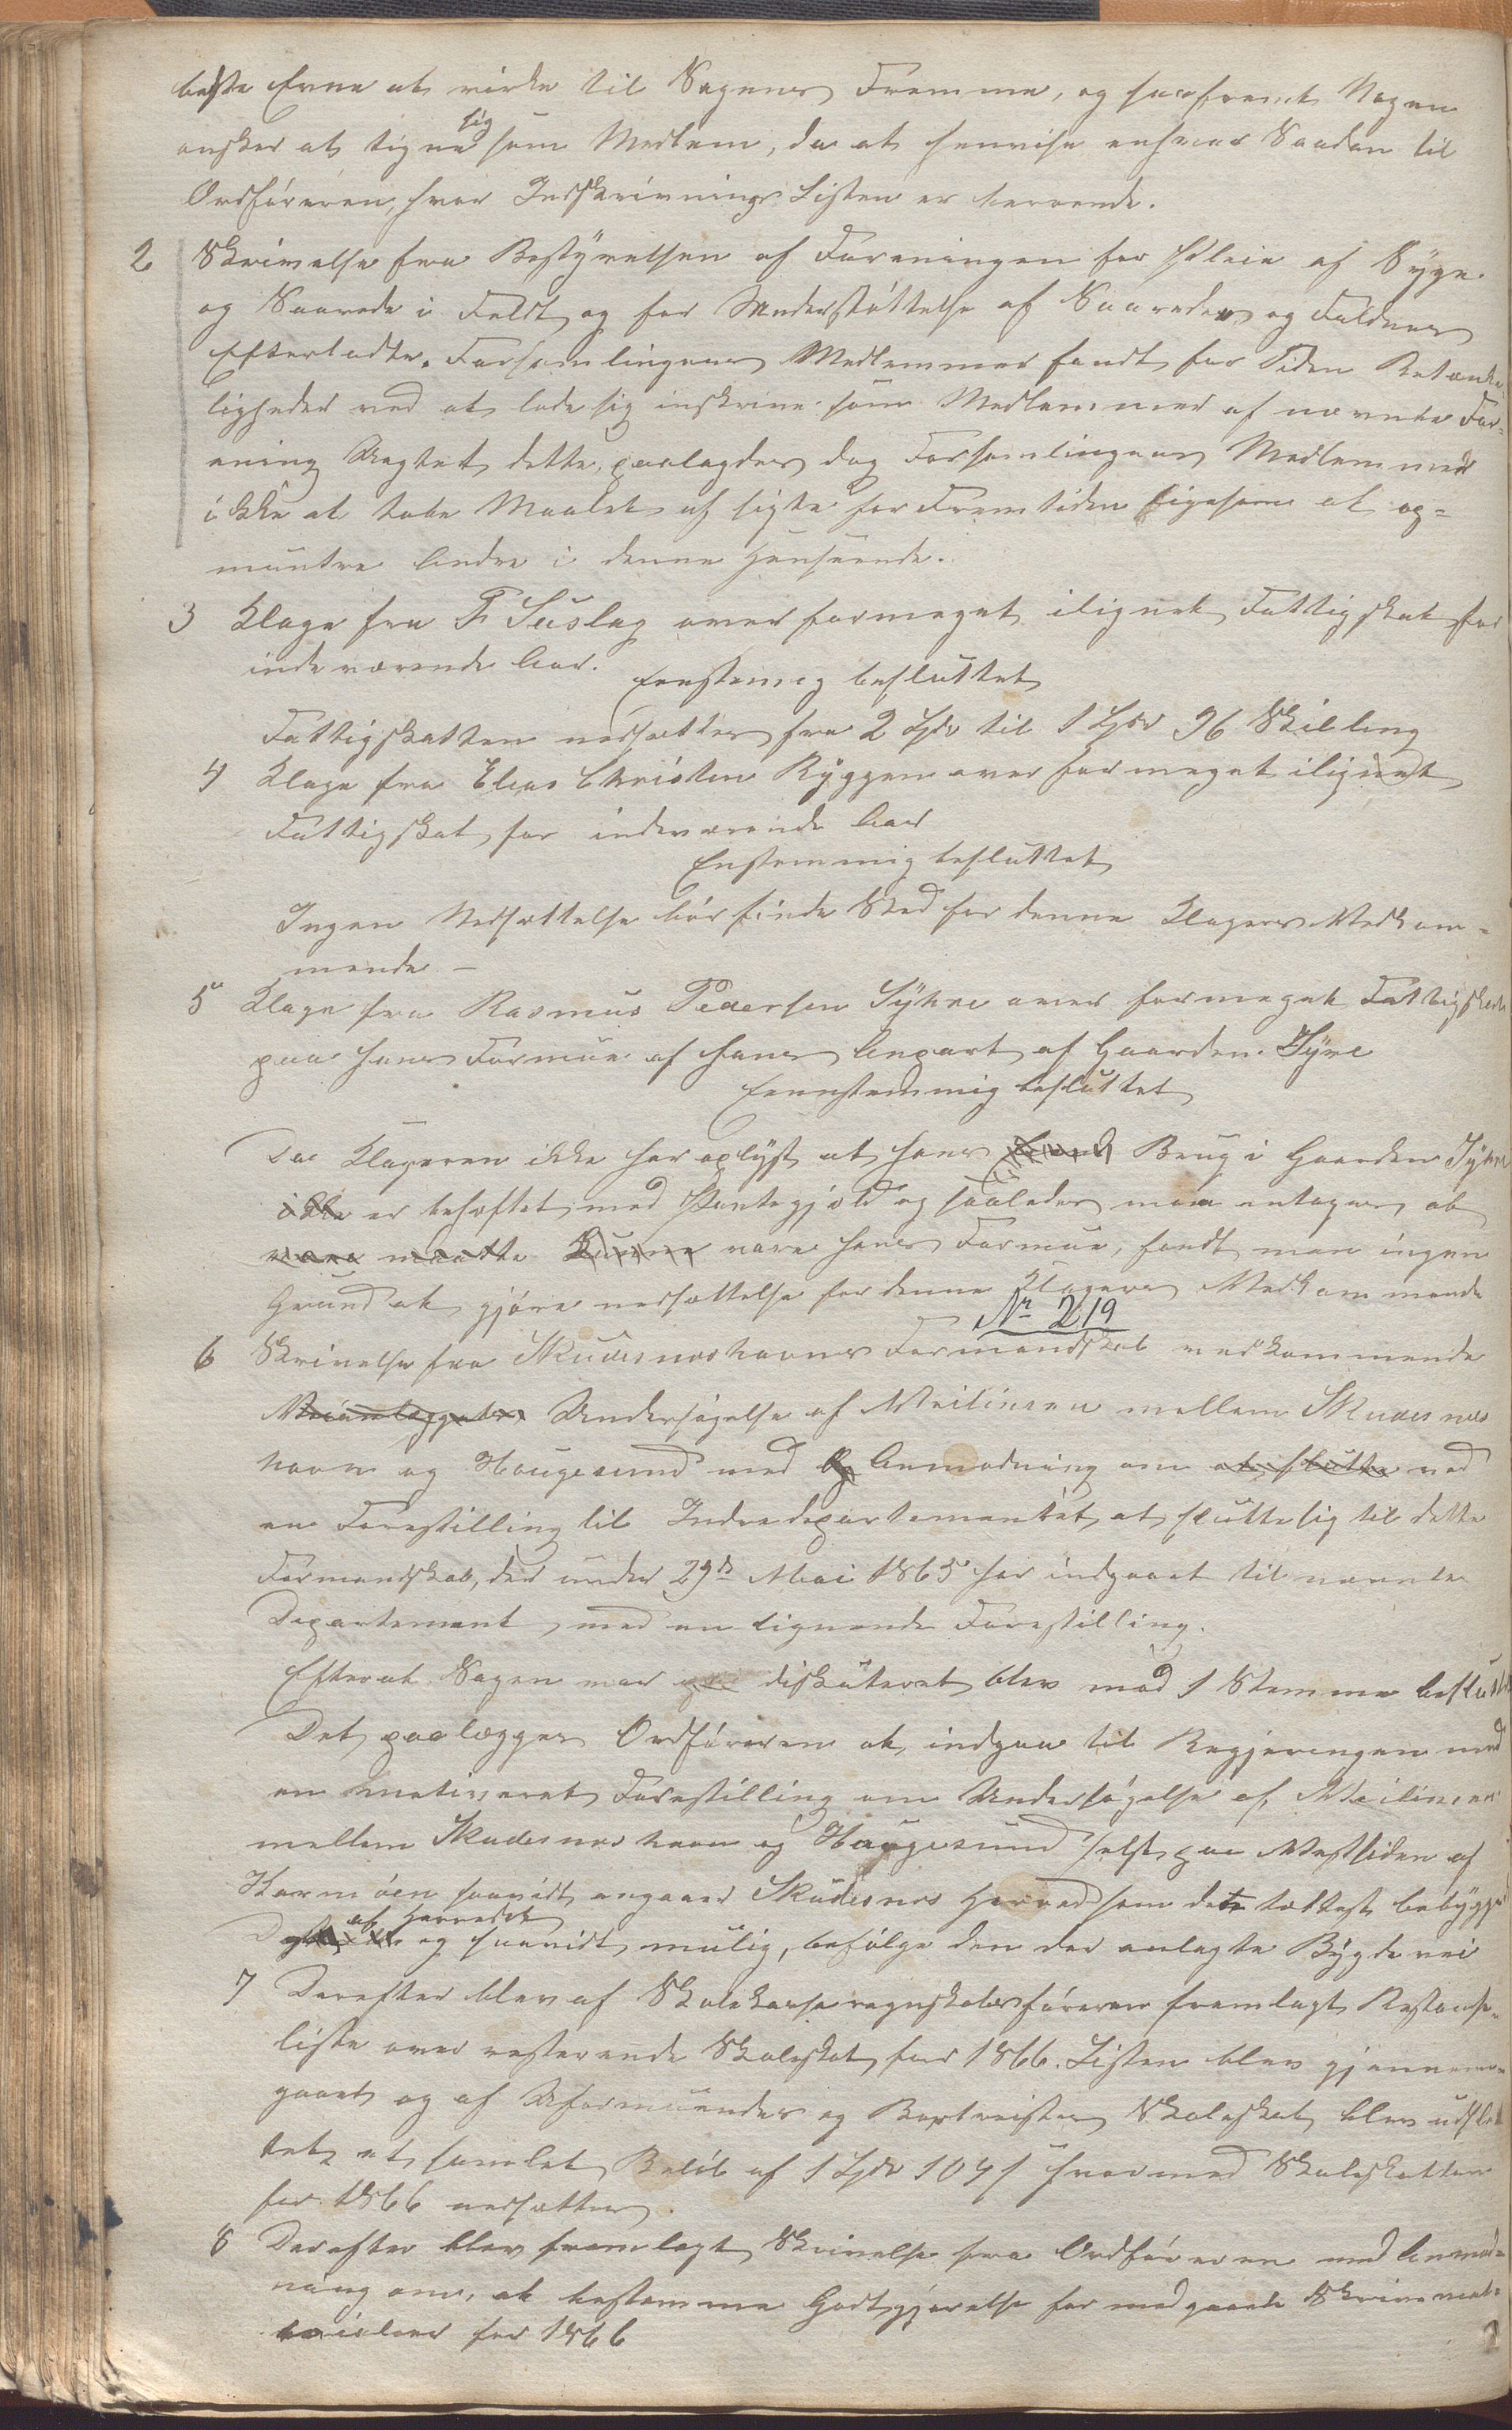 beste Evne at virke til Sagens Fremme, og saafremt Nogen
ønsker at tegne sig som Medlem, da at henvise enhver Saadan til
Ordføreren, hvor Indskrivnings Listen er beroende.
2 Skrivelse fra Bestyrelsen af Foreningen for Pleie af Syge
og Saarede i Feldt og for Understøttelse af Saaredes og Faldnes
Efterladte. Forsamlingens Medlemmer fandt for Tiden Betænke
ligheder ved at lade sig inskrive som Medlemmer af nævnte For=
ening Uagtet dette, paalagdes dog Forsamlingens Medlemmer
ikke at tabe Maalet af sigte for Fremtiden ligesom at op=
muntre Andre i denne Henseende.
3 Klage fra T Suslag over formeget ilignet Fattigskat for
indeværende Aar.
Eenstemig besluttet
Fattigskatten nedsættes fra 2 Spd til 1 Spd 96 Skilling
4 Klage fra Elias Christen Ryggen over formeget ilignet
Fattigskat for indeværende Aar
Enstemmig besluttet
Ingen Nedsættelse bør finde Sted for denne Klagers Vedkom=
mende —
5 Klage fra Rasmus Pedersen Syhre over formeget Fattigskat
paa hans Formue af hans Anpart af Gaarden Syre
Eenstemmig besluttet
Da Klageren ikke har oplyst at hans Brug i Gaarden Syhre
ikke er behæftet med Pantegjæld og saaledes maa antages, at
være maatte kunne være hans Formue, fandt man ingen
Grund at gjøre nedsættelse for denne Klagers Vedkommende
Nr 219
6 Skrivelse fra Skudesneshavns Formandskab vedkommende
Veianlægget Undersøgelse af Veilinien mellem Skudesnes
havn og Hougesund med Anmodning om at slutte ved
en Forestilling til Indredepartementet at slutte sig til dette
Formandskab, der under 29de Mai 1865 har indgaaet til nævnte
Departement med en lignende Forestilling.
Efterat Sagen var diskuteret blev mod 1 Stemme besluttet
Det paalægges Ordføreren at indgaa til Regjeringen med
en motiveret Forestilling om Undersøgelse af Veilinien
mellem Skudesneshavn og Haugesund helst paa Vestsiden af
Karmøen saavidt angaaer Skudesnes Herred som det tættest bebygge
af Herredet
og saavidt mulig, befølge den der anlagte Bygdevei
7 Derefter blev af Skolekasseregnskabsføreren fremlagt Restanse=
liste over resterende Skoleskat for 1866. Listen blev gjennem=
gaaet og af Uformuendes og Bortreistes Skoleskat blev udslet
tet et samlet Beløb af 1 Spd 104 s hvormed Skoleskatten
for 1866 nedsættes.
8 Derefter blev fremlagt Skrivelse fra Ordføreren med Anmod=
ning om, at bestemme Godtgjørelse for medgaaede Skrivemat=
erialier for 1866